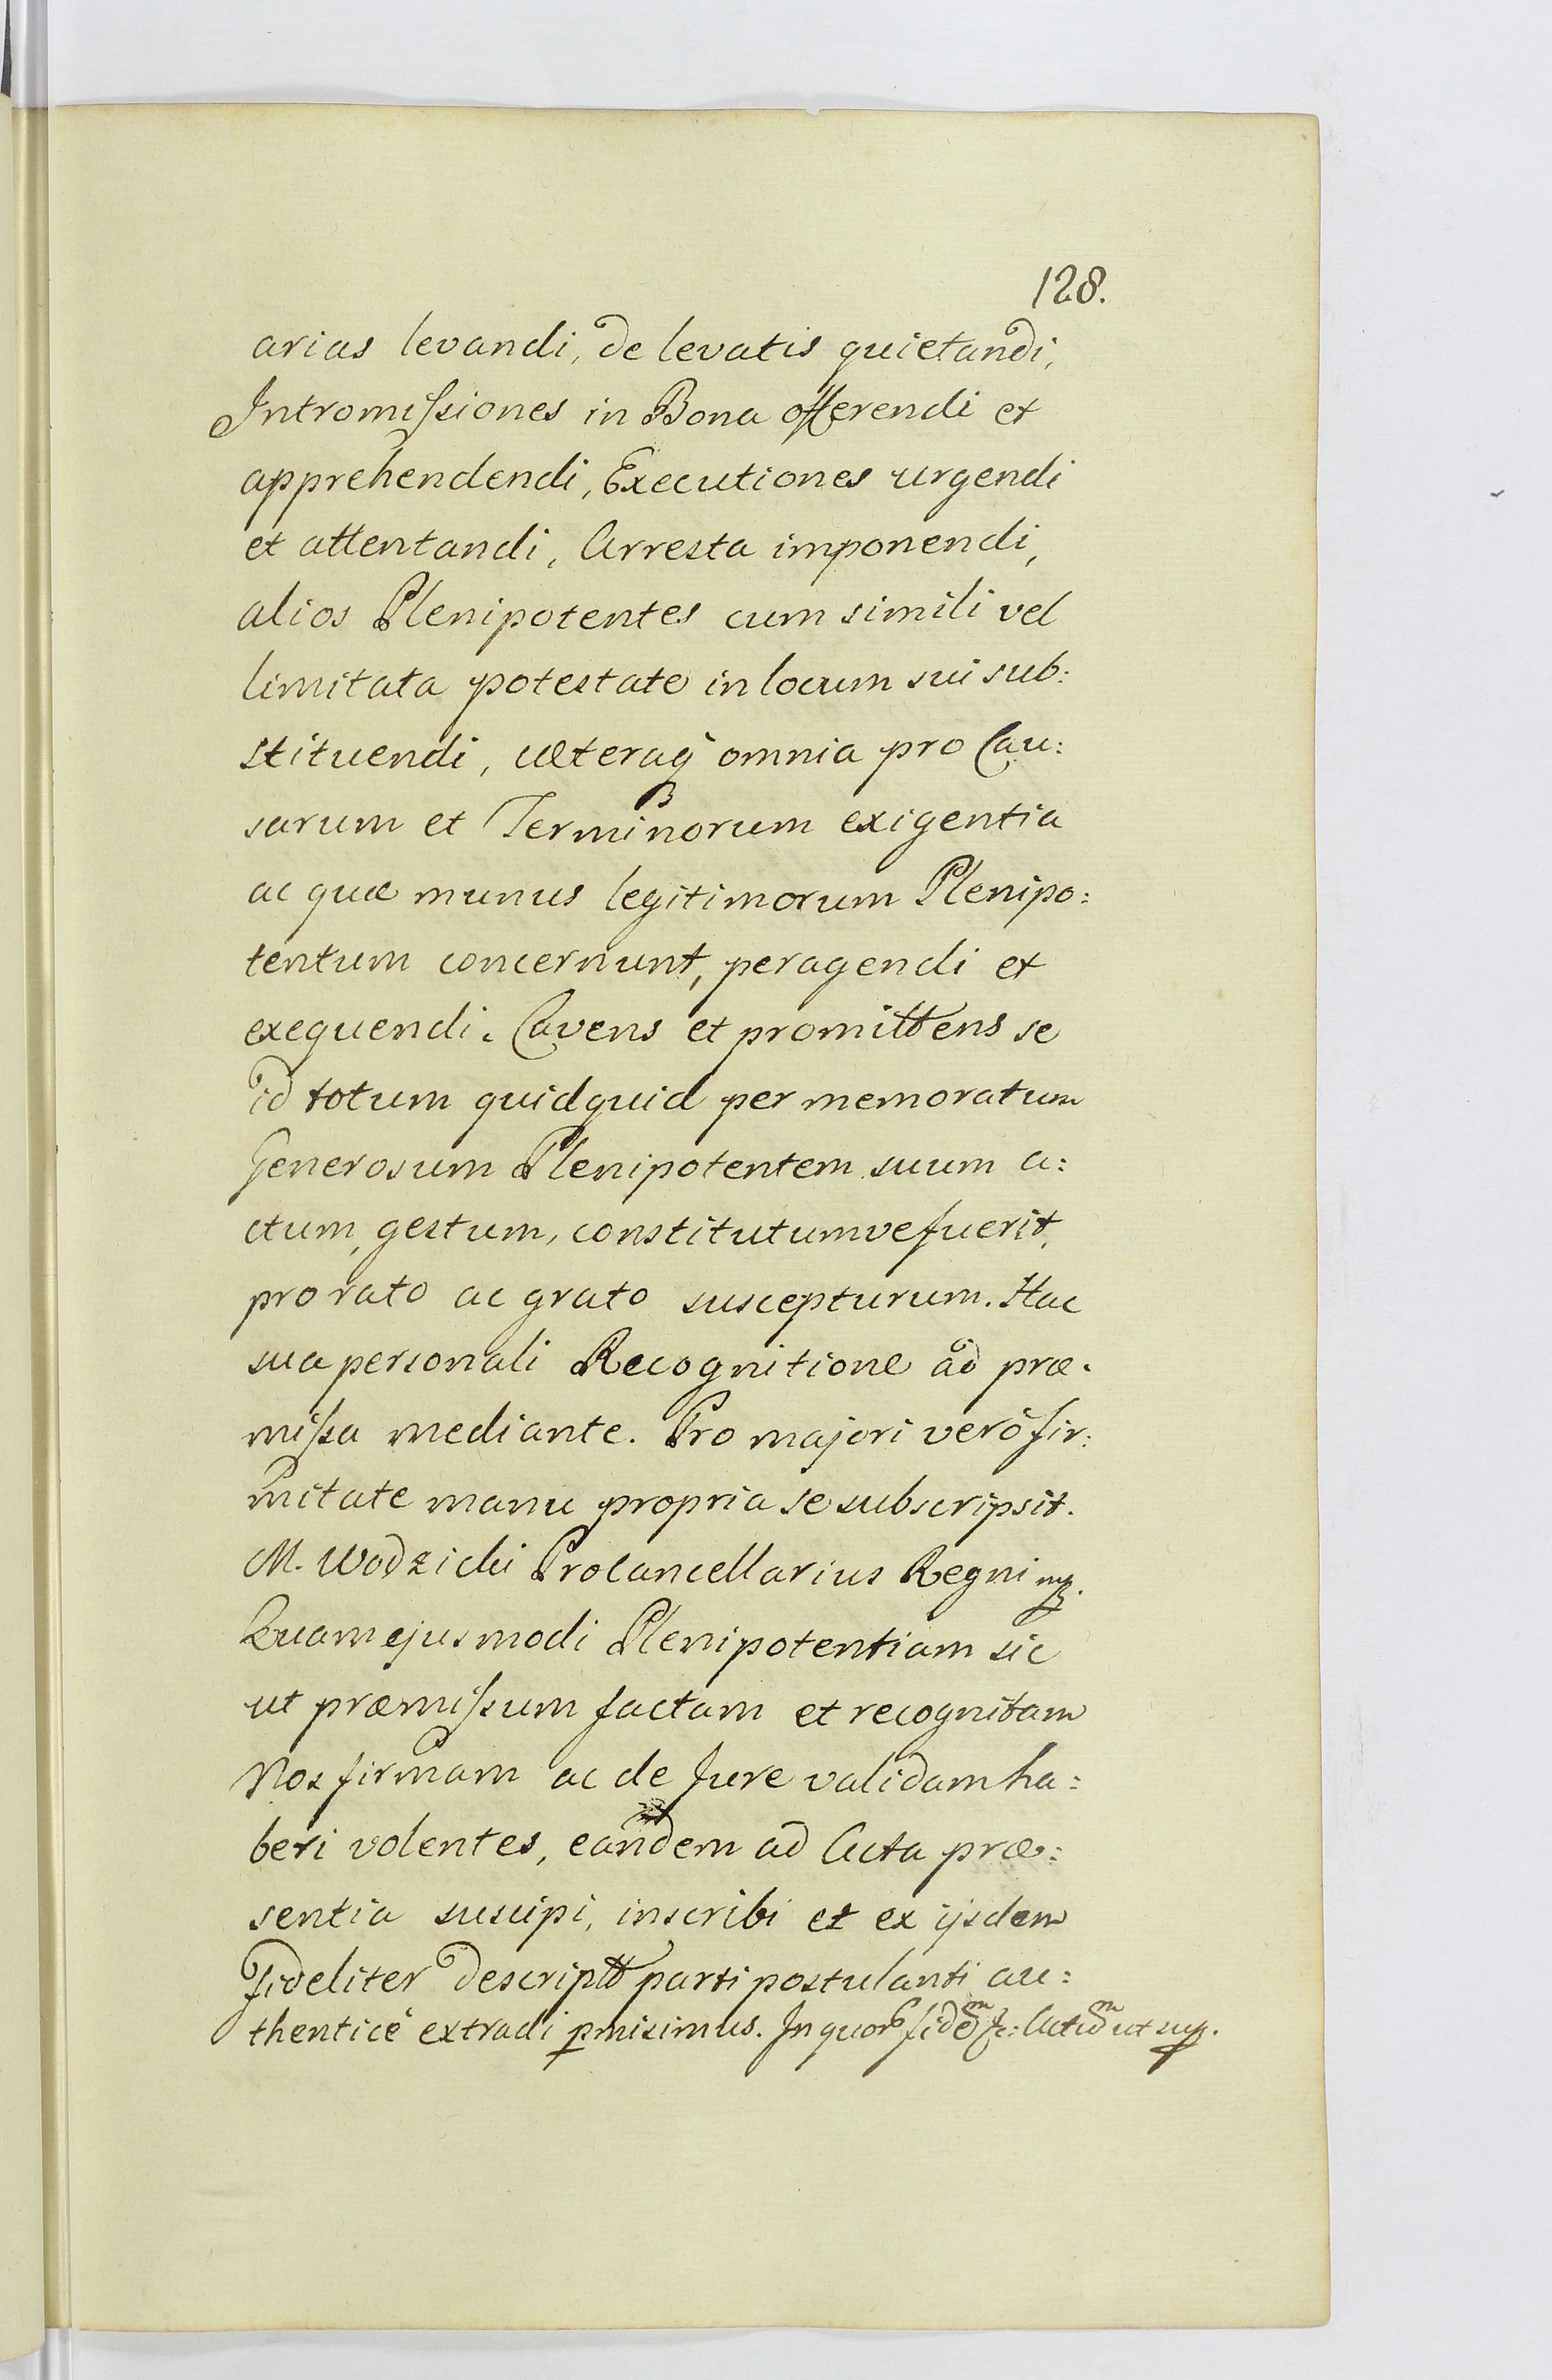 128.
arias levandi, de levatis quietandi,
Intromissiones in Bona offerendi et
apprehendendi, Executiones urgendi
et attentandi, Arresta imponendi,
alios Plenipotentes cum simili vel
limitata potestate in locum sui sub:
stituendi, cæteraq omnia pro Cau:
sarum et Terminorum exigentia
ac quæ munus legitimorum Plenipo:
tentum concernunt, peragendi et
exequendi. Cavens et promittens se
id totum quidquid per memoratum
Generosum Plenipotentem suum a:
ctum, gestum, constitutumve fuerit,
pro rato ac grato suscepturum. Hac
sua personali Recognitione ad præ.
missa mediante. Pro majori verò fir:
mitate manu propria se subscripsit.
M. Wodzicki Procancellarius Regni mp.
Quam ejusmodi Plenipotentiam sic
ut præmissum factam et recognitam
Nos firmam ac de Jure validam ha:
beri volentes, eandem ad Acta præ:
sentia suscipi, inscribi et ex ijsdem
fideliter descriptt parti postulanti au:
thenticè extradi pmisimus. In quor fidem &c: Actum ut sup.